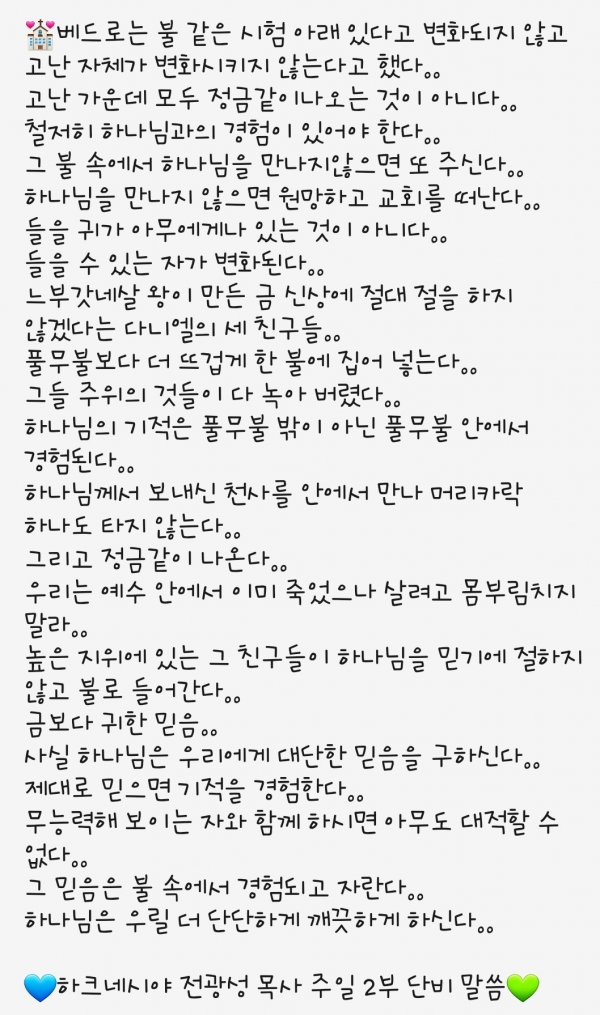 💒베드로는 불 같은 시험 아래 있다고 변화되지 않고
고난 자체가 변화시키지 않는다고 했다。。
고난 가운데 모두 정금같이나오는 것이 아니다。。
철저히 하나님과의 경험이 있어야 한다。。
그 불 속에서 하나님을 만나지않으면 또 주신다。。
하나님을 만나지 않으면 원망하고 교회를 떠난다。。
들을 귀가 아무에게나 있는 것이 아니다。。
들을 수 있는 자가 변화된다。。
느부갓네살 왕이 만든 금 신상에 절대 절을 하지
않겠다는 다니엘의 세 친구들。。
풀무불보다 더 뜨겁게 한 불에 집어 넣는다。。
그들 주위의 것들이 다 녹아 버렸다。。
하나님의 기적은 풀무불 밖이 아닌 풀무불 안에서
경험된다。。
하나님께서 보내신 천사를 안에서 만나 머리카락
하나도 타지 않는다。。
그리고 정금같이 나온다。。
우리는 예수 안에서 이미 죽었으나 살려고 몸부림치지
말라。。
높은 지위에 있는 그 친구들이 하나님을 믿기에 절하지
않고 불로 들어간다。。
금보다 귀한 믿음。。
사실 하나님은 우리에게 대단한 믿음을 구하신다。。
제대로 믿으면 기적을 경험한다。。
무능력해 보이는 자와 함께 하시면 아무도 대적할 수
없다。。
그 믿음은 불 속에서 경험되고 자란다。。
하나님은 우릴 더 단단하게 깨끗하게 하신다。。
💙하크네시야 전광성 목사 주일 2부 단비 말씀💚